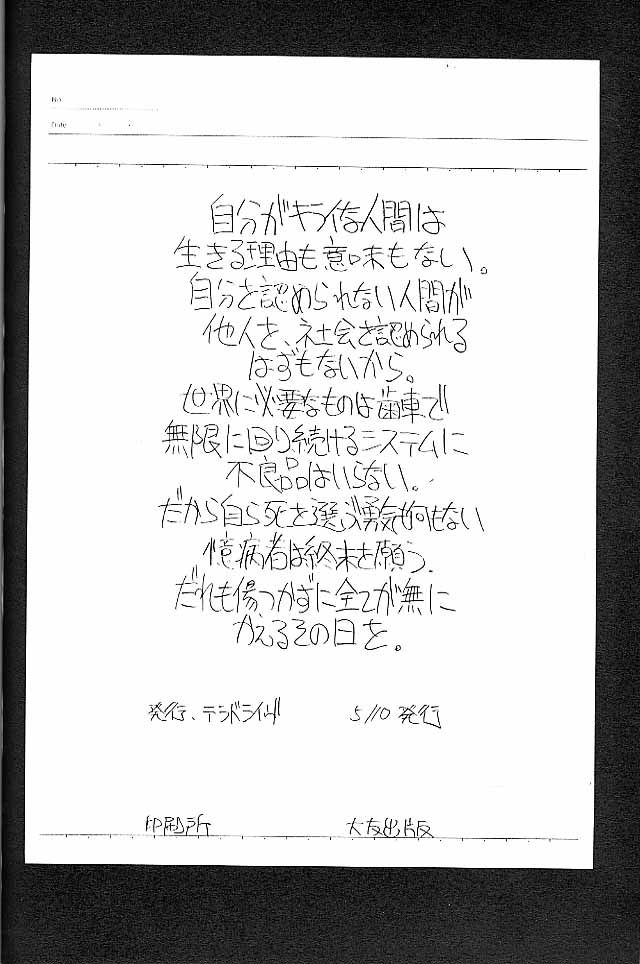 No.
Date
自分がキライな人間は
生きる理由も意味もない。
自分を認められない人間が
他人を、社会を認められる
はずもないから。
世界に必要なものは歯車で
無限に回り続けるシステムに
不良品はいらない。
だから自ら死を選ぶ勇気も何もない
憶病者は終末を願う。
だれも傷つかずに全てが無に
かえるその日を。
発行、テラドライヴ 5/10 発行
印刷所 大友出版